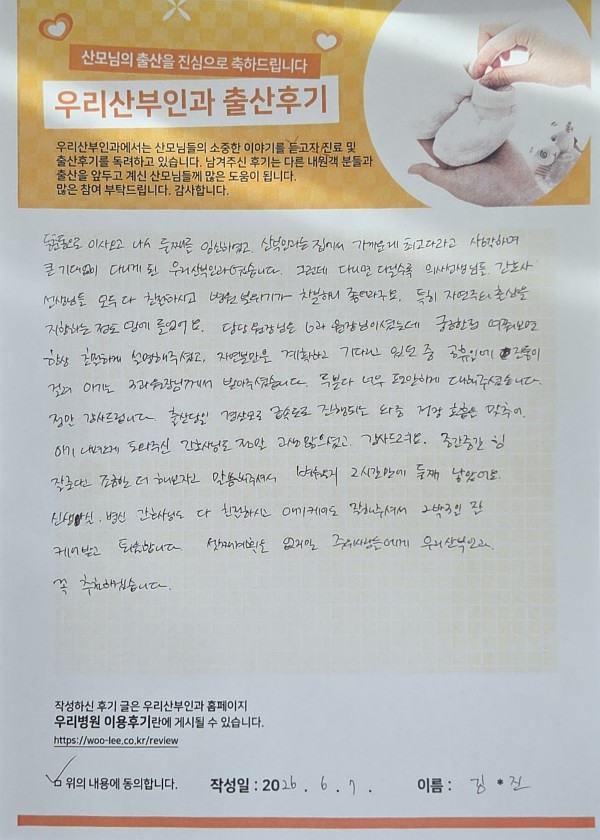 산모님의 출산을 진심으로 축하드립니다
우리산부인과 출산후기
우리산부인과에서는 산모님들의 소중한 이야기를 듣고자 진료 및
출산후기를 독려하고 있습니다. 남겨주신 후기는 다른 내원객 분들과
출산을 앞두고 계신 산모님들께 많은 도움이 됩니다.
많은 참여 부탁드립니다. 감사합니다.
이사오고 나서 둘째를 임신하였고, 산부인과는 집에서 가까운게 최고다라고 생각하며
큰 기대없이 다니게 된 우리산부인과였습니다. 그런데 다니면 다닐수록 의사선생님들, 간호사
선생님들 모두 다 친절하시고 병원 분위기가 차분해서 좋더라구요. 특히 자연주의 출산을
지향하는 점도 맘에 들었어요. 담당 원장님은 원장님이셨는데 궁금한점 여쭤보면
항상 친절하게 설명해주셨고, 자연분만을 계획하고 기다리고 있던 중 공휴일에 진통이
걸려 아기는 원장님께서 받아주셨습니다. 두분다 너무 편안하게 대해주셨습니다.
정말 감사드립니다. 출산당일 경산모로 급속도로 진행되는 와중 저랑 호흡을 맞추어,
아기 내려오게 도와주신 간호사님들 정말 고생 많으셨고, 감사드려요. 중간중간 힘
조금만 더 해보자고 말씀해주셔서 2시간만에 둘째 낳았어요.
신생아실, 병실 간호사님들 다 친절하시고 아기케어도 잘해주셔서 2박3일 잘
케어받고 퇴원합니다. 셋째계획은 없지만 주위사람들에게 우리산부인과
꼭 추천하겠습니다.
작성하신 후기 글은 우리산부인과 홈페이지
우리병원 이용후기란에 게시될 수 있습니다.
https://woo-lee.co.kr/review
위의 내용에 동의합니다. 작성일 : 2026 . 6 . 7 . 이름 : 김 * 진